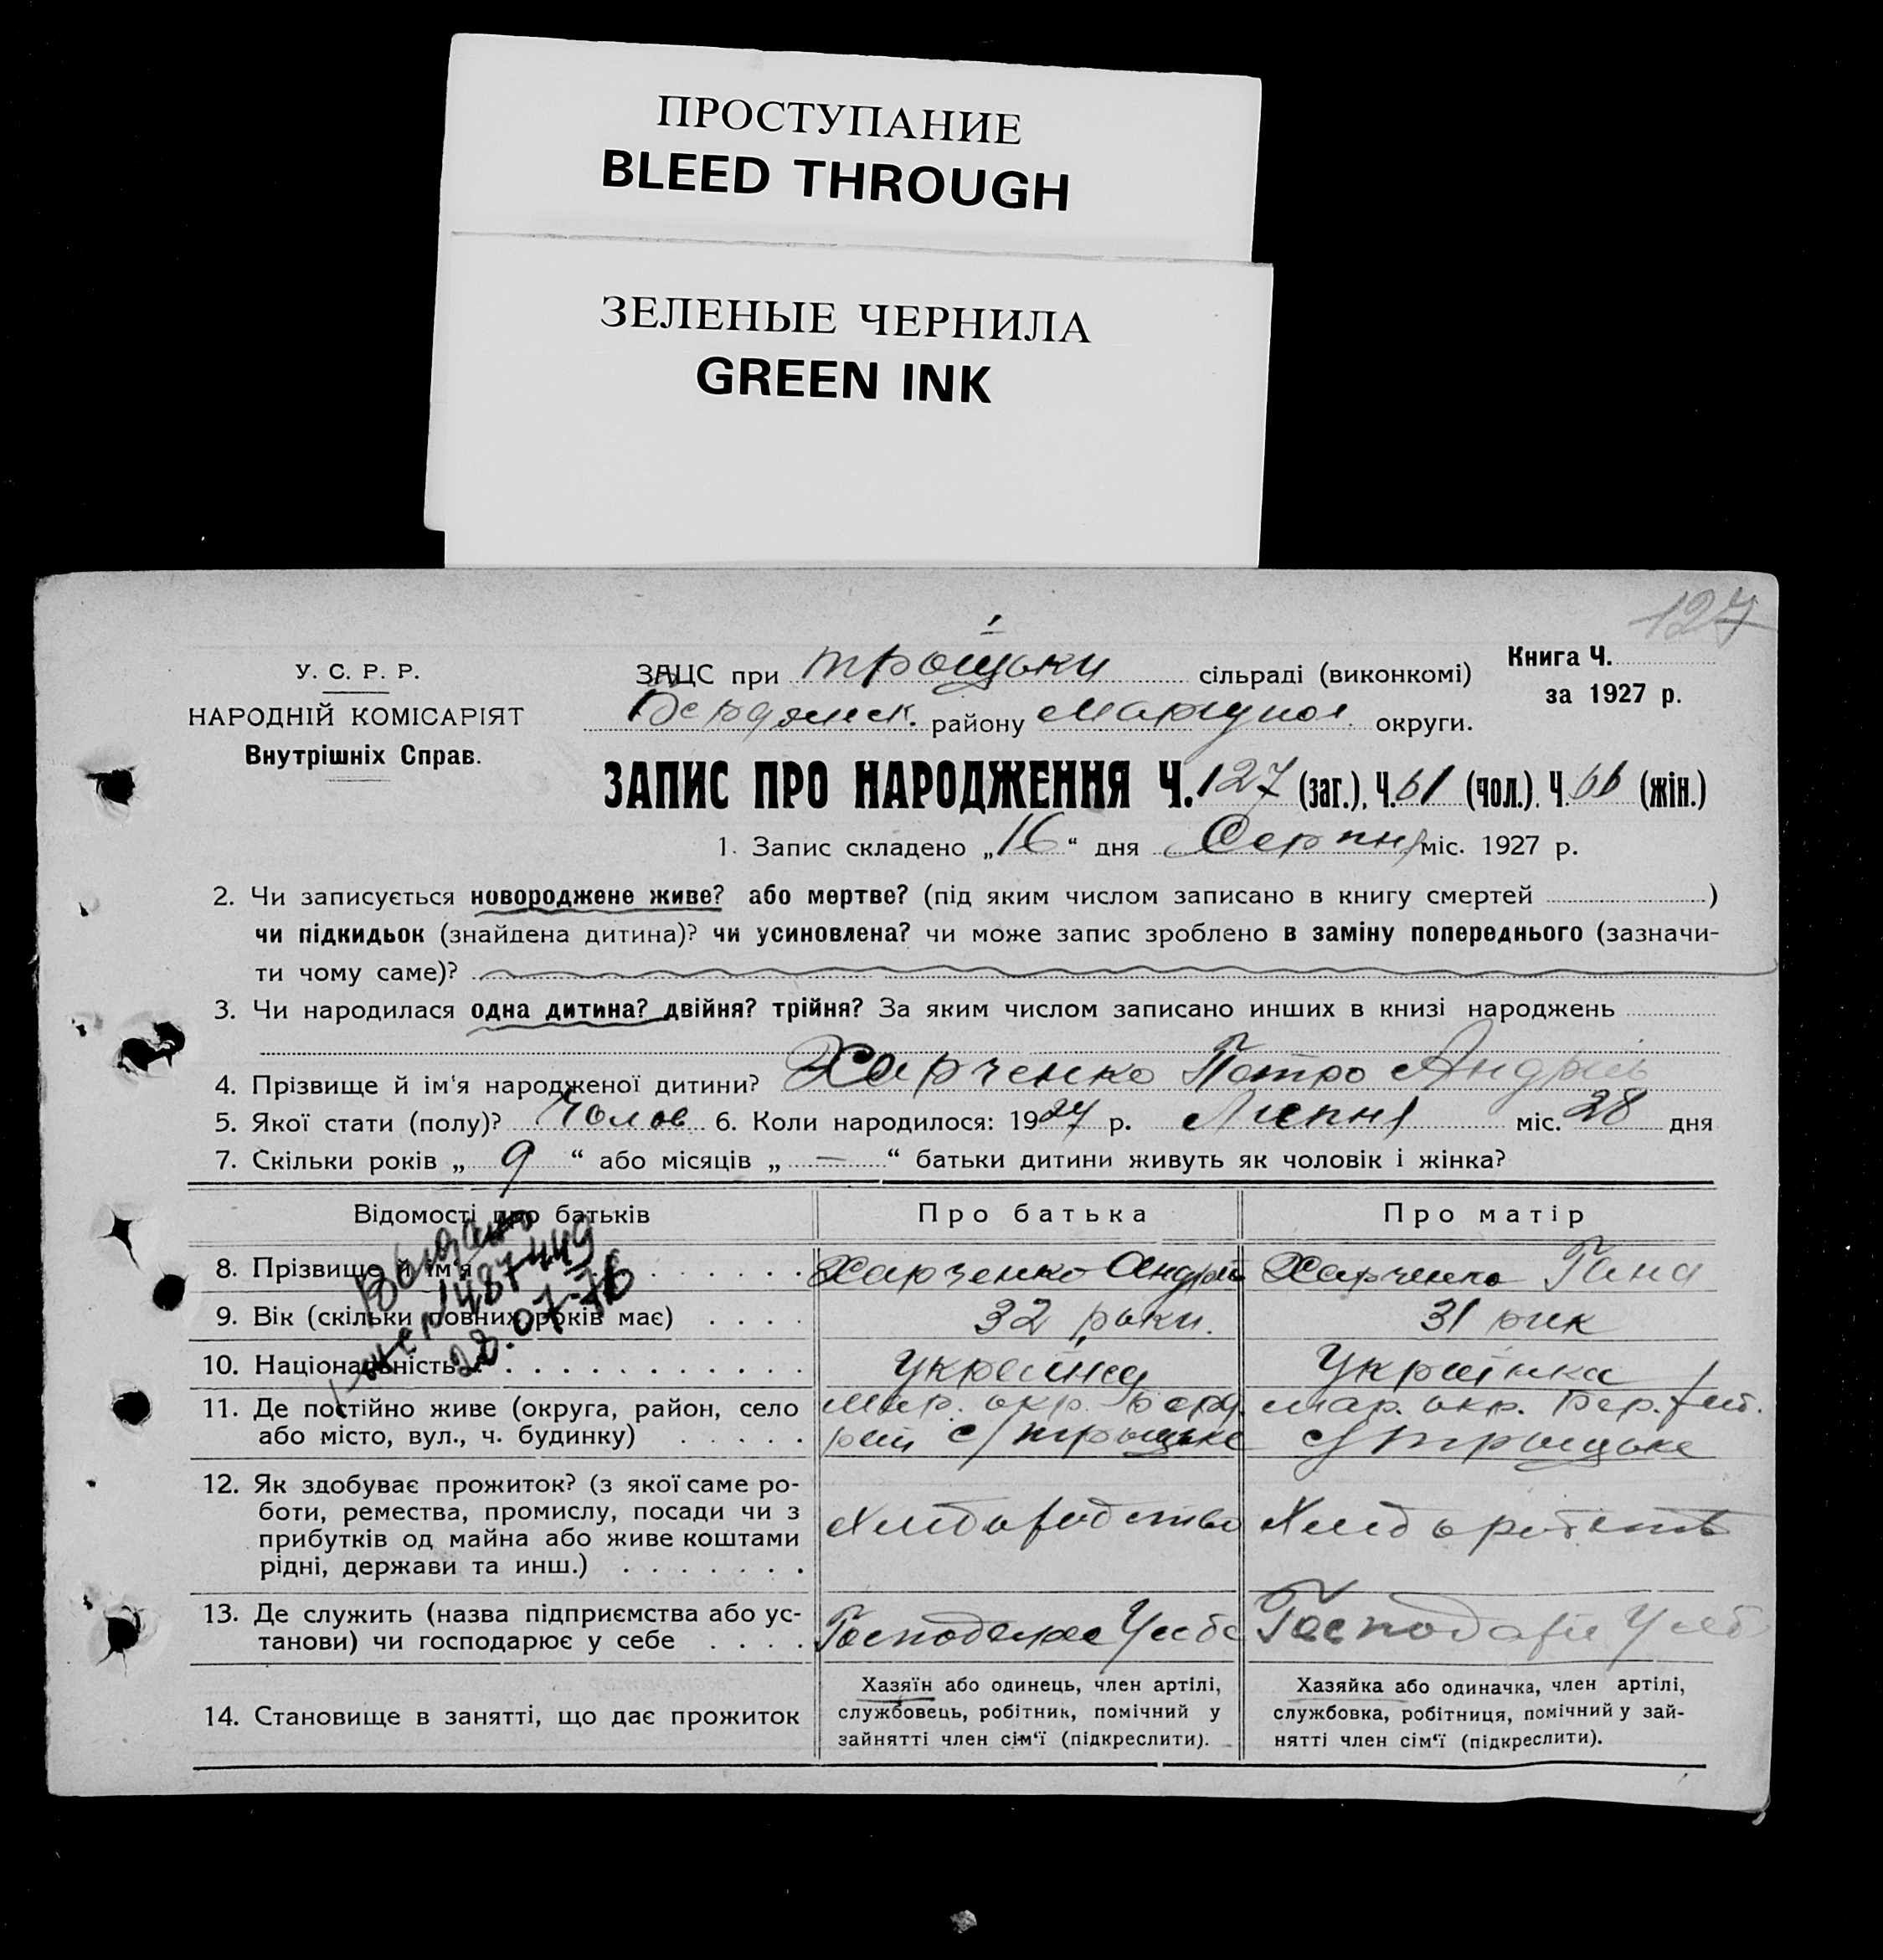 ПРОСТУПАНИЕ
BLEED THROUGH
ЗЕЛЕНЫЕ ЧЕРНИЛА
GREEN INK
127
У. С. Р. Р.
НАРОДНІЙ КОМІСАРІЯТ
Внутрішніх Справ.
ЗАЦС при Троцьки сільраді (виконкомі)
Бердянск. району Маріупол. округи.
Книга Ч.
за 1927 р.
ЗАПИС ПРО НАРОДЖЕННЯ Ч. 127 (заг.), Ч. 61 (чол.). Ч. 66 (жін.)
1. Запис складено „16“ дня Серпня міс. 1927 р.
2. Чи записується новороджене живе? або мертве? (під яким числом записано в книгу смертей )
чи підкидьок (знайдена дитина)? чи усиновлена? чи може запис зроблено в заміну попереднього (зазначи-
ти чому саме)?
3. Чи народилася одна дитина? двійня? трійня? За яким числом записано инших в книзі народжень
4. Прізвище й ім'я народженої дитини? Харченко Петро Андріїв
5. Якої стати (полу)? Чолов 6. Коли народилося: 1927 р. Липня міс. 28 дня
7. Скільки років „9“ або місяців „—“ батьки дитини живуть як чоловік і жінка?
Відомості про батьків
Про батька
Про матір
8. Прізвище й ім'я
Харченко Андрій
Харченко Гана
9. Вік (скільки повних років має)
32 роки.
31 рик
10. Національність
Українец
Українка
11. Де постійно живе (округа, район, село
або місто, вул., ч. будинку)
Мар. окр. Берд.
рай с/Троцьке
Мар. окр. Бер. рай.
с/Троцьке
12. Як здобуває прожиток? (з якої саме ро-
боти, ремества, промислу, посади чи з
прибутків од майна або живе коштами
рідні, держави та инш.)
Хліборобство
Хлібороб
13. Де служить (назва підприємства або ус-
танови) чи господарює у себе
Господарює У себе
Господарює У себ
14. Становище в занятті, що дає прожиток
Хазяїн або одинець, член артілі,
службовець, робітник, помічний у
зайнятті член сім'ї (підкреслити).
Хазяйка або одиначка, член артілі,
службовка, робітниця, помічний у зай-
нятті член сім'ї (підкреслити).
1487449
28.07-76